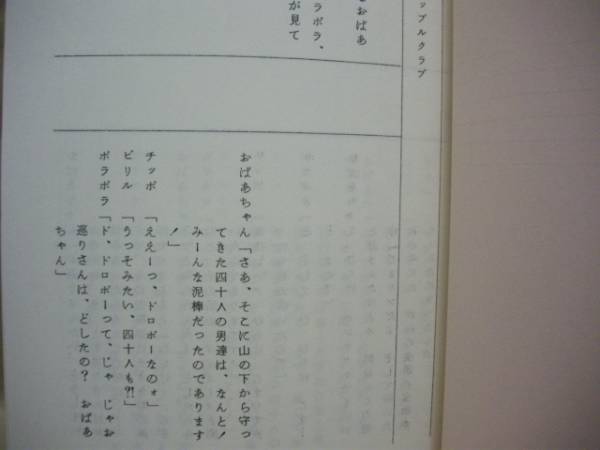 ップルクラブ
おばあ
ラポラ、
が見て
おばあちゃん「さあ、そこに山の下から守っ
てきた四十人の男達は、なんと!
みーんな泥棒だったのであります
!」
チッポ「ええーつ、ドロボーなのォ」
ピリル「うっそみたい、四十人も?!」
ポラポラ「ド、ドロボーって、じゃ じゃお
巡りさんは、どしたの? おばあ
ちゃん」